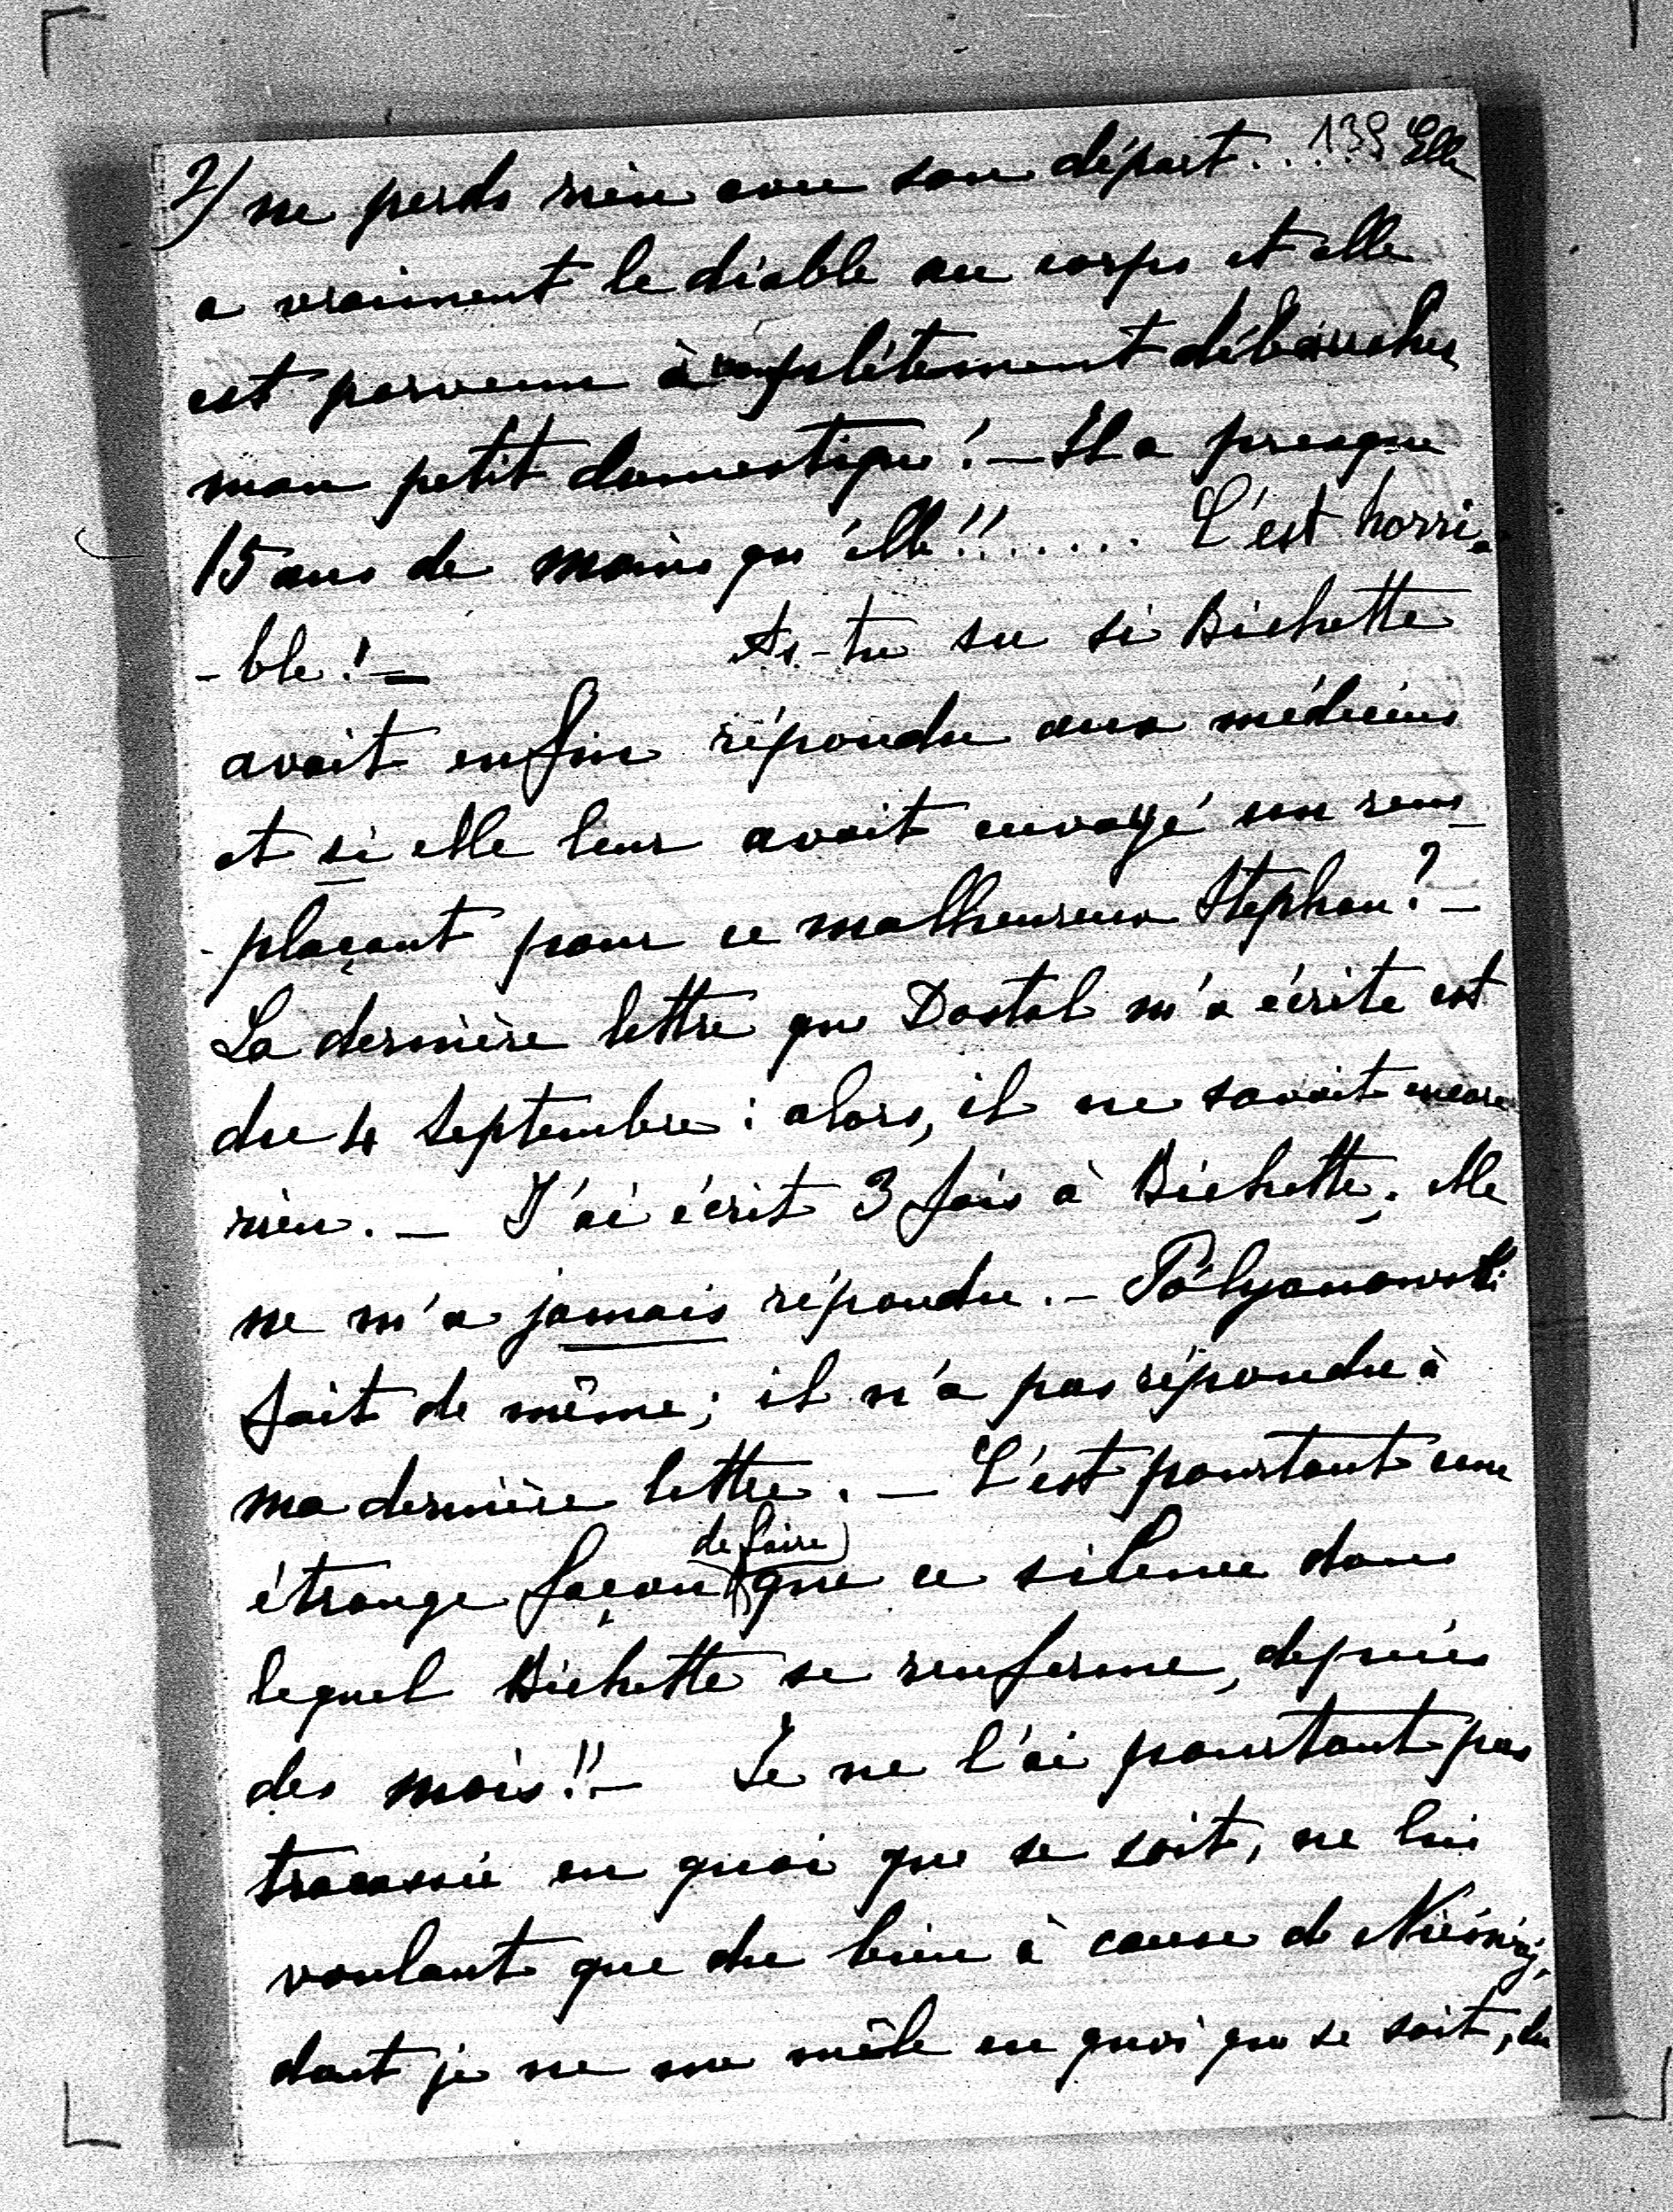 139
2/ ne perds rien avec son départ...... Elle
a vraiment le diable au corps et elle
est parvenue à complétement débaucher
mon petit domestique! — Il a presque
15 ans de moins qu'elle!!...... C'est horri-
-ble! — As-tu su si Bichette
avait enfin répondu aux médecins
et si elle leur avait envoyé un rem-
-plaçant pour ce malheureux Stephan? —
La dernière lettre que Dostal m'a écrite est
du 4 Septembre: alors, il ne savait encore
rien. — J'ai écrit 3 fois à Bichette; elle
ne m'a jamais répondu. — Polyanowski
fait de même; il n'a pas répondu à
ma dernière lettre. — C'est pourtant une
étrange façon de faire que ce silence dans
lequel Bichette se renferme, depuis
des mois!! — Je ne l'ai pourtant pas
tracassée en quoi que se soit, ne lui
voulant que du bien à cause de
dont je ne me mêle en quoi que se soit, du